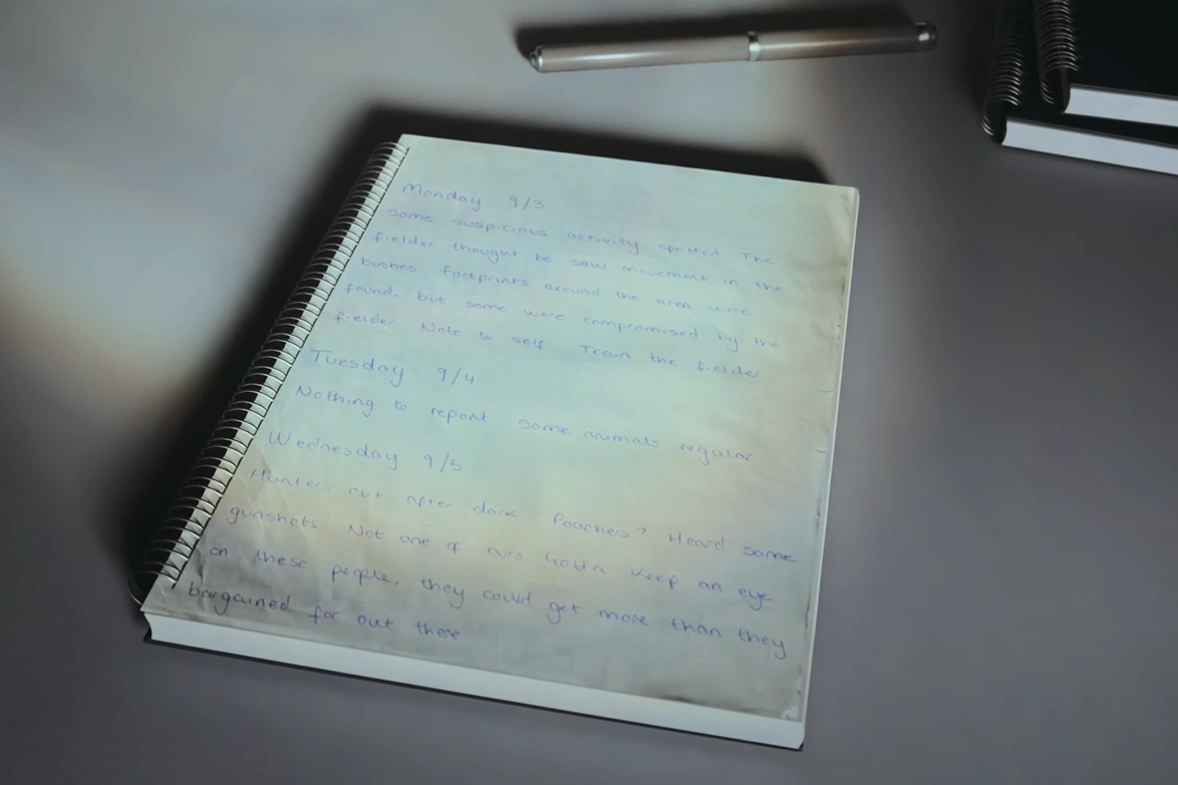 Monday 9/3
Some suspicious activity spotted The
fielder thought he saw movement in the
bushes footprints around the area were
found, but some were compromised by the
fielder Note to self Train the fielder
Tuesday 9/4
Nothing to report some animals regular
Wednesday 9/5
Hunters out after dark Poachers? Heard some
gunshots Not one of ours Gotta keep an eye
on these people, they could get more than they
bargained for out there